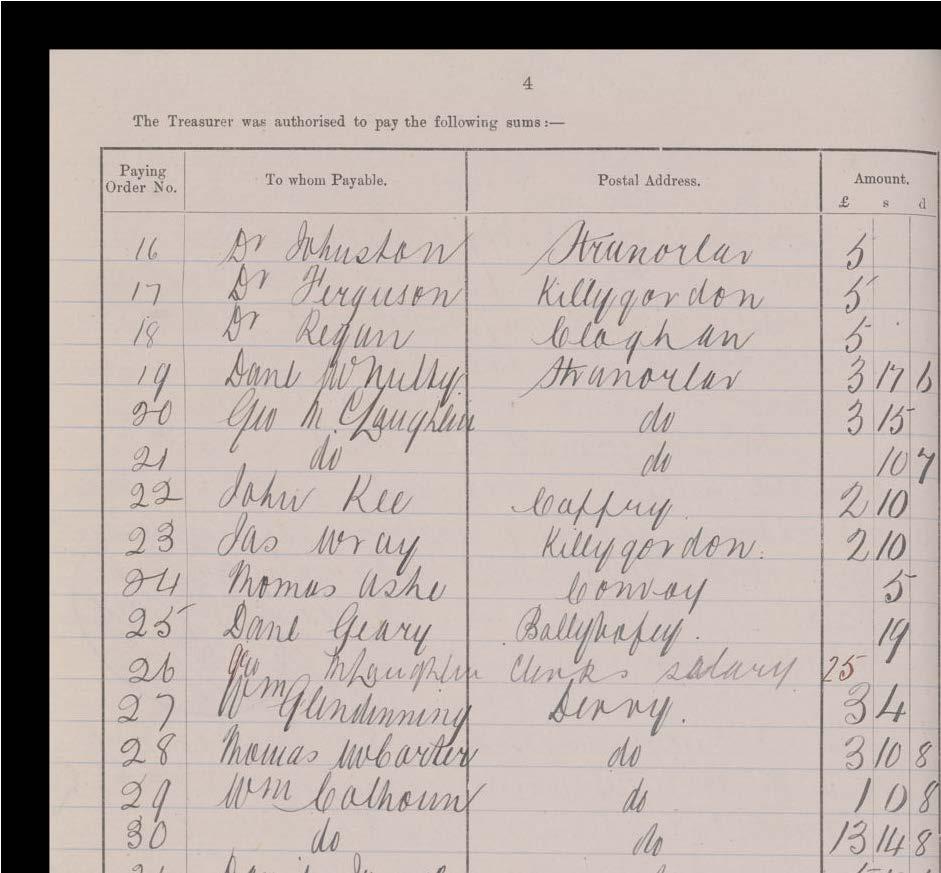 4
The Treasurer was authorised to pay the following sums:—
Paying Order No. To whom Payable. Postal Address. Amount.
£ s d
16 Dr Johnston Stranorlar 5
17 Dr Ferguson Killygordon 5
18 Dr Regan Cloghan 5
19 Danl McNulty Stranorlar 3 17 6
20 Geo McLaughlin do 3 15
21 do do 10 7
22 John Kee Cappry 2 10
23 Jas Wray Killygordon 2 10
24 Thomas Ashe Convoy 5
25 Danl Geary Ballybofey 19
26 Geo McLaughlin Clerks salary 25
27 Wm Glendinning Derry 3 4
28 Thomas McCarter do 3 10 8
29 Wm Colhoun do 1 0 8
30 do do 13 14 8